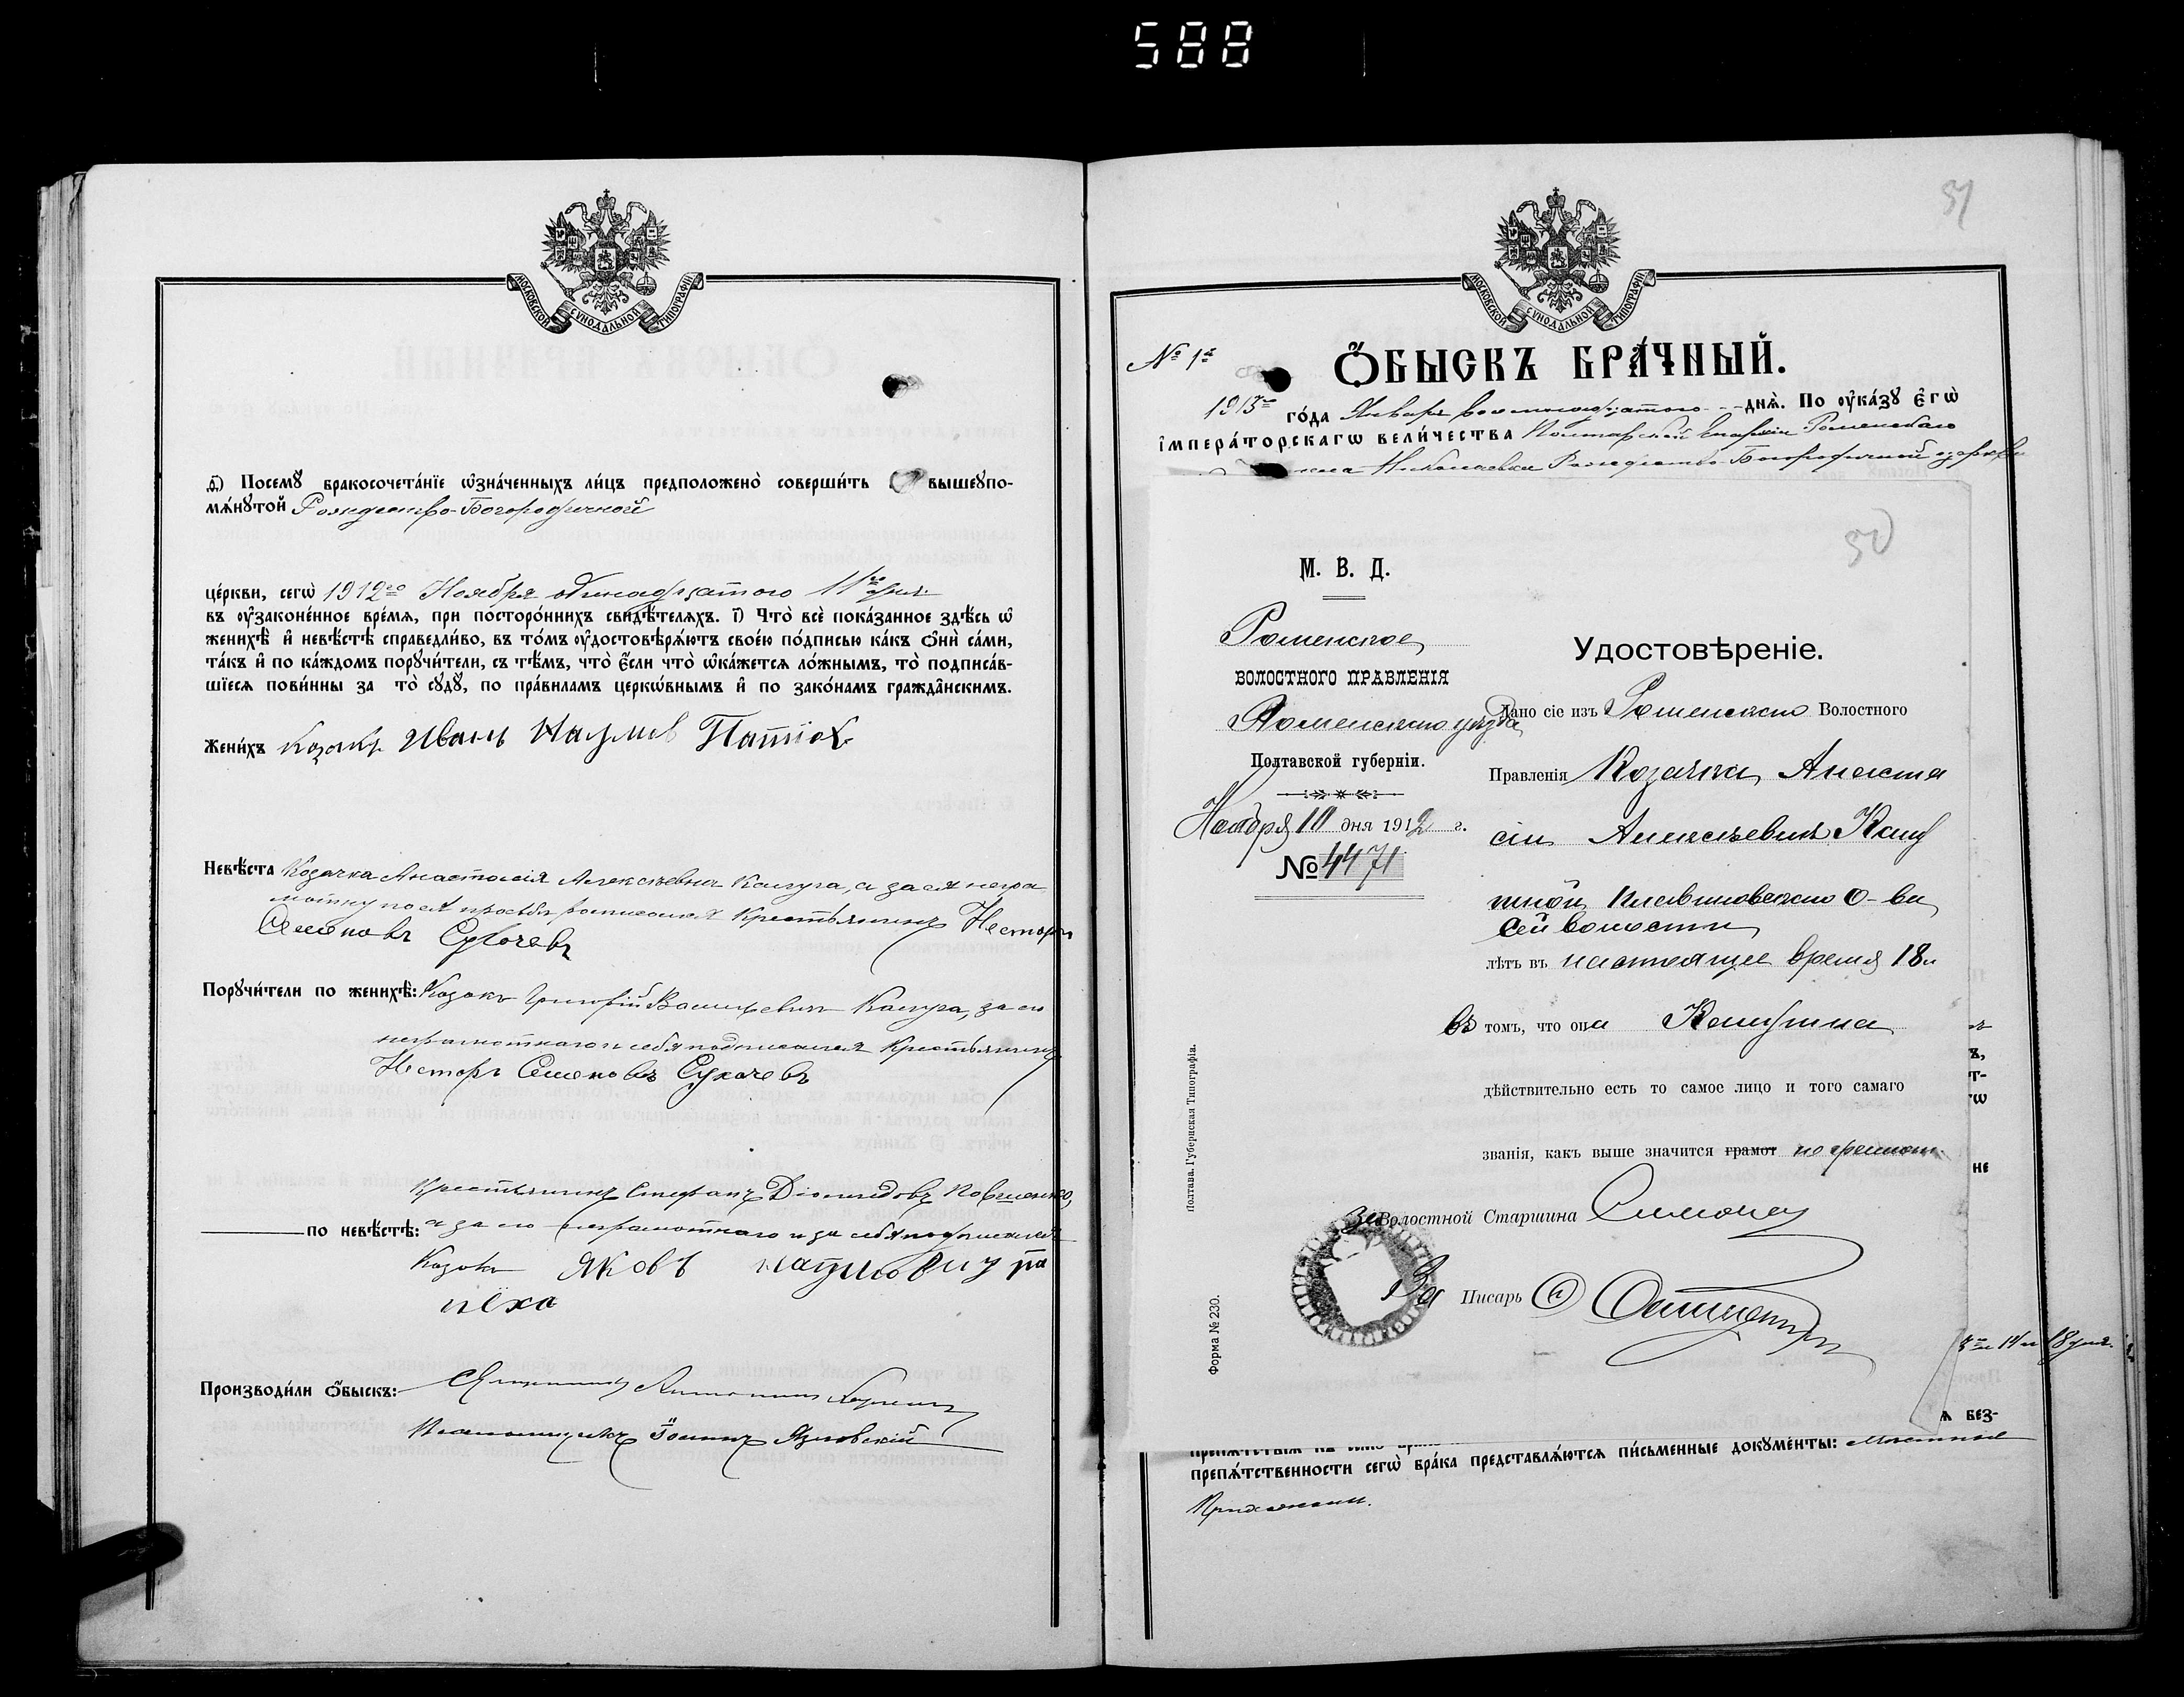 588
МОСКОВСКОЙ СѴНОДАЛЬНОЙ ТИПОГРАФІИ
д҃) Посемꙋ̀ бракосочета́нїе ѡ҆зна́ченныхъ ли́цъ предположено̀ соверши́ть вышеꙋпо-
мѧ́нꙋтой Рождество-Богородичной
це́ркви, сегѡ̀ 1912го Ноября одинадцатого 11го дня
въ ᲂу҆зако́ненное вре́мѧ, при посторо́ннихъ свидѣ́телѧхъ. і҃) Что̀ всѐ пока́занное здѣ́сь ѡ҆
женихѣ̀ и҆ невѣ́стѣ справедли́во, въ то́мъ ᲂу҆достовѣрѧ́ютъ свое́ю по́дписью ка́къ ѻ҆нѝ са́ми,
та́къ и҆ по ка́ждомъ порꙋчи́тели, съ тѣ́мъ, что̀ є҆́сли что̀ ѡ҆ка́жетсѧ ло́жнымъ, то̀ подписа́в-
шїесѧ пови́нны за то̀ сꙋдꙋ̀, по пра́виламъ церкѡ́внымъ и҆ по зако́намъ гражда̂нскимъ.
Жени́хъ Козакъ Иванъ Наумов
Невѣ́ста Козачка Анастасія Алексѣевна Капуга, а за ея негра
мотную по ея просьбѣ росписался Крестьянинъ Несторъ
Семеновъ Сукачевъ
Порꙋчи́тели по женихѣ̀: Козакъ Григорій Васильевичъ Капуга, за его
неграмотного и себя подписался Крестьянинъ
Несторъ Семеновъ Сукачевъ
Крестьянинъ Стефанъ Діомидовъ
по невѣ́стѣ: а за его неграмотного и за себя подписался
Козакъ Яковъ наумовичъ
Производи́ли ѻ҆́быскъ: Священникъ
Псаломщикъ Іоаннъ Язловскій
51
МОСКОВСКОЙ СѴНОДАЛЬНОЙ ТИПОГРАФІИ
№ 1й
Ѻ҆́БЫСКЪ БРА́ЧНЫЙ.
1913го го́да Января восемнадцатого днѧ̀. По ᲂу҆ка́зꙋ Є҆гѡ̀
і҆мпера́торскагѡ вели́чества Полтавской Епархіи Роменскаго
Николаевки Рождество-Богородичной церкви
50
М. В. Д.
Роменское
ВОЛОСТНОГО ПРАВЛЕНІЯ
Роменскаго уѣзда
Полтавской губерніи.
Ноября 10 дня 1912 г.
№ 4471
Удостовѣреніе.
Дано сіе изъ Роменскаго Волостного
Правленія Козачки Анаста
сіи Алексѣевнѣ Капу
о-ва
сей волости
лѣтъ въ настоящее время 18
въ томъ, что она
дѣйствительно есть то самое лицо и того самаго
званія, какъ выше значится грамот неграмот.
За Волостной Старшина
За Писарь
Полтава. Губернская Типографія.
Форма № 230.
ъ,
т-
гѡ
не
14 и 18 дня.
ѧ без-
препѧ́тственности сегѡ̀ бра́ка представлѧ́ютсѧ пи́сьменные докꙋме́нты: Местные
Прихожани.